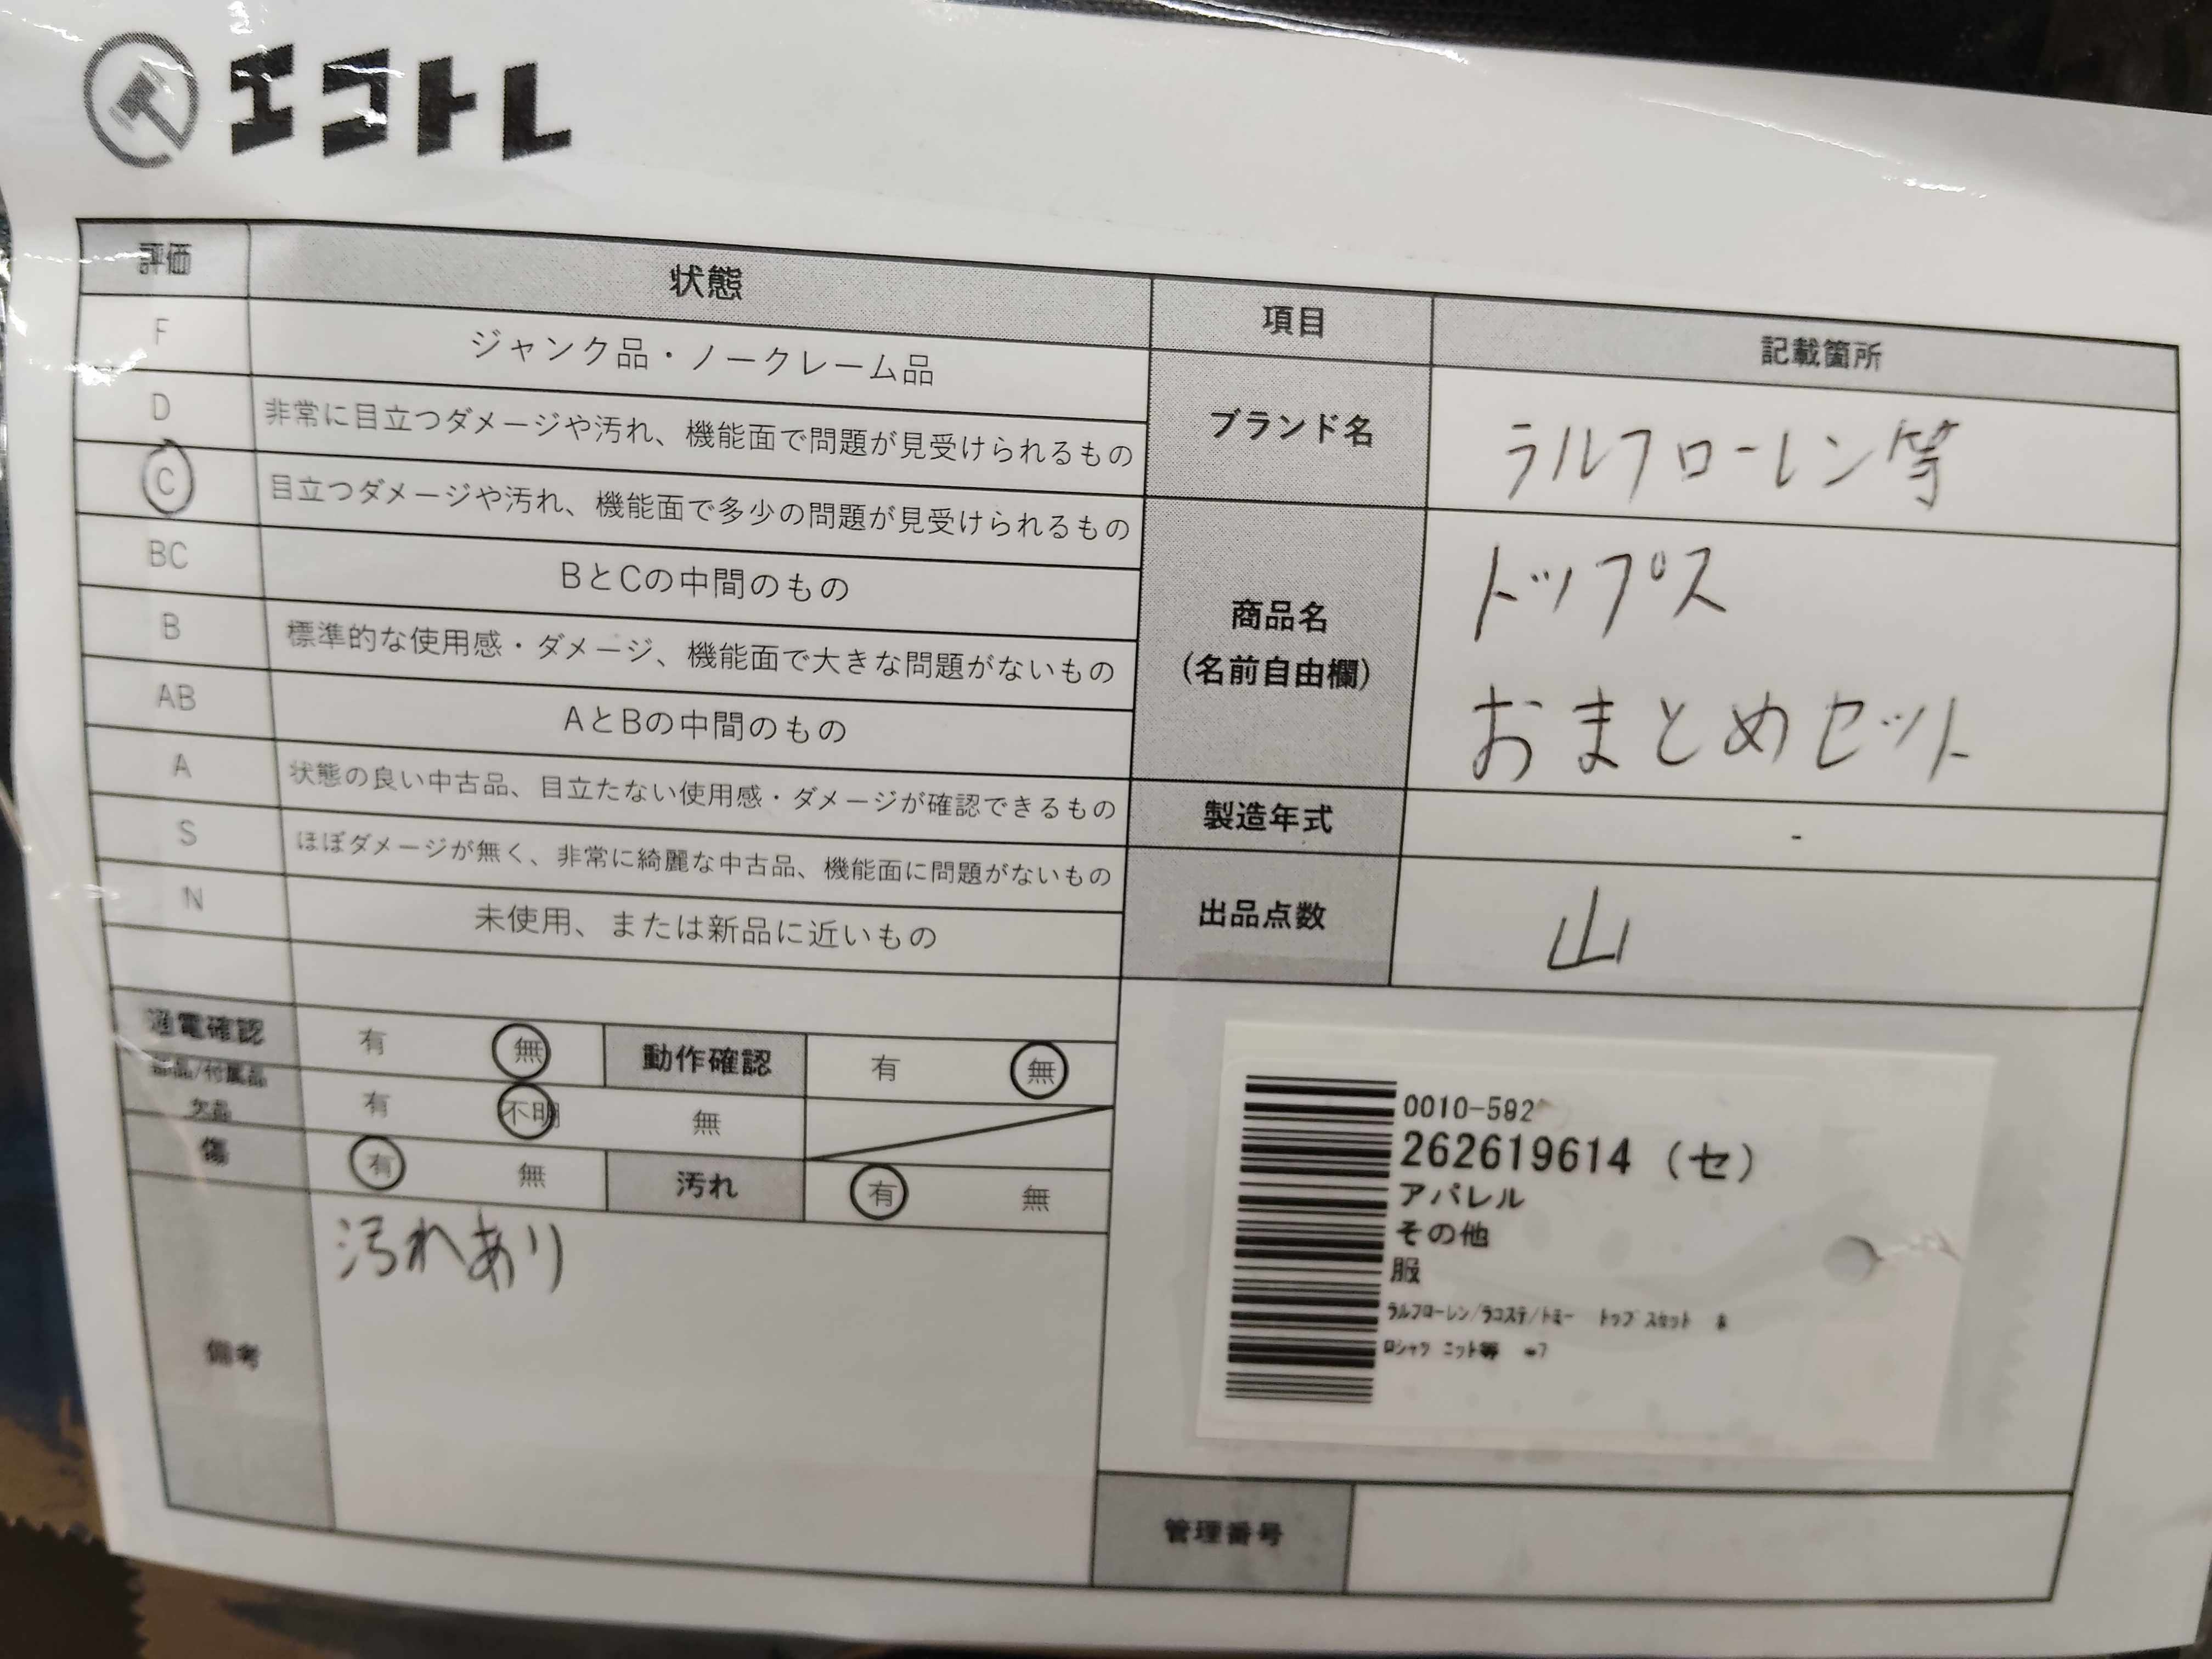 エコトレ
評価 状態 項目 記載箇所
F ジャンク品・ノークレーム品
D 非常に目立つダメージや汚れ、機能面で問題が見受けられるもの
C 目立つダメージや汚れ、機能面で多少の問題が見受けられるもの
BC BとCの中間のもの
B 標準的な使用感・ダメージ、機能面で大きな問題がないもの
AB AとBの中間のもの
A 状態の良い中古品、目立たない使用感・ダメージが確認できるもの
S ほぼダメージが無く、非常に綺麗な中古品、機能面に問題がないもの
N 未使用、または新品に近いもの
ブランド名 ラルフローレン等
商品名
(名前自由欄)
トップス
おまとめセット
製造年式 -
出品点数 山
通電確認 有 無 動作確認 有 無
部品/付属品
欠品 有 不明 無
傷 有 無 汚れ 有 無
備考 汚れあり
0010-592
262619614 (セ)
アパレル
その他
服
ラルフローレン/ラコステ/トミー トップスセット
ロシャツ ニット等
管理番号